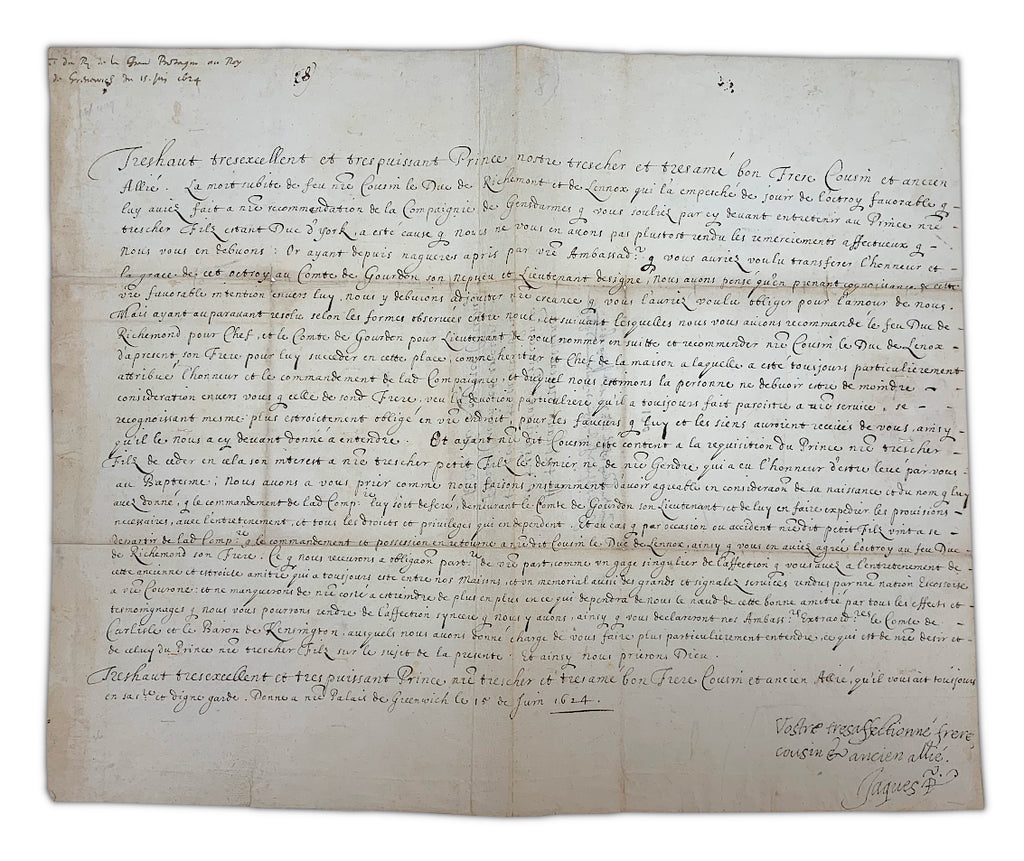 du Roy de la Grand Bretagne au Roy
de Grenewich du 15. Juin 1624
Treshaut tresexcellent et trespuissant Prince nostre trescher et tresamé bon Frere Cousin et ancien
Allié. La mort subite de feu nre Cousin le Duc de Richemont et de Lennox qui l'a empesché de jouir de l'octroy favorable q
luy aviez fait a nre recommendation de la Compaignie de Gensdarmes q vous souliez par cy devant entretenir au Prince nre
trescher Filz estant Duc d'york, a esté cause q nous ne vous en avons pas plustost rendu les remerciements affectueux q
nous vous en debuons: Or ayant depuis nagueres apris par vre Ambassadr q vous auriez voulu transferer l'honneur et
la grace de cet octroy au Comte de Gourdon son nepveu et Lieutenant designé, nous avons pensé qu'en prenant cognoissance de cette
vre favorable intention envers luy, nous y debuions adjouster nre creance q vous l'auriez voulu obliger pour l'amour de nous.
Mais ayant auparavant resolu selon les formes observees entre nous, et suivant lesquelles nous vous avions recommandé le feu Duc de
Richemond pour Chef, et le Comte de Gourdon pour Lieutenant de vous nommer en suitte et recommender nre Cousin le Duc de Lenox
d'apresent son Frere pour luy succeder en cette place, comme heritier et Chef de la maison a laquelle a esté tousjours particulierement
attribué l'honneur et le commandement de lad Compaignie, et duquel nous estimons la personne ne debuoir estre de moindre
consideration envers vous q celle de sond Frere, veu la devotion particuliere qu'il a tousjours fait paroistre a vre service, se
recognoissant mesme plus estroictement obligé en vre endroit pour les faveurs q luy et les siens auroient receües de vous, ainsy
qu'il le nous a cy devant donné a entendre. Et ayant nre dit Cousin esté content a la requisition du Prince nre trescher
Filz de ceder en cela son interest a nre trescher petit Filz le dernier né de nre Gendre qui a eu l'honneur d'estre levé par vous
au Baptesme; Nous avons a vous prier comme nous faisons instamment d'avoir agreable en consideraon de sa naissance et du nom q luy
avez donné, q le commandement de lad Compie luy soit deferé, demeurant le Comte de Gourdon son Lieutenant, et de luy en faire expedier les provisions
necessaires, avec l'entretenement, et tous les droits et privileges qui en dependent. Et au cas q par occasion ou accident nredit petit Filz vint a se
departir de lad Compie q le commandement et possession en retourne a nredit Cousin le Duc de Lennox, ainsy q vous en aviez agreé l'octroy au feu Duc
de Richemond son Frere. Ce q nous recevrons a obligaon partre de vre part, comme un gage singulier de l'affection q vous avez a l'entretenement de
cette ancienne et estroicte amitié qui a tousjours esté entre nos Maisons, et un memorial aussi des grands et signalez services rendus par nre nation Escossoise
a vre Couronne: et ne manquerons de nre costé a estreindre de plus en plus en ce qui dependra de nous le nœud de cette bonne amitié par tous les effects et
tesmoignages q nous vous pourrons rendre de l'affection syncere q nous y avons, ainsy q vous declareront nos Ambassrs Extraordres le Comte de
Carlisle et le Baron de Kensington, ausquels nous avons donné charge de vous faire plus particulierement entendre, ce qui est de nre desir et
de celuy du Prince nre trescher Filz sur le sujet de la presente. Et ainsy nous prierons Dieu.
Treshaut tresexcellent et trespuissant Prince nre trescher et tresamé bon Frere Cousin et ancien Allié, qu'il vous ait tousjours
en sa ste et digne garde. Donné a nre Palais de Greenwich le 15e de Juin 1624.
Vostre tresaffectionné frere,
cousin & ancien allié.
Jaques R